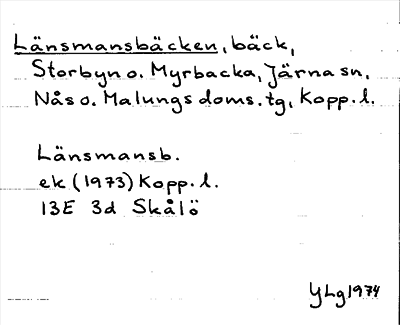 Länsmansbäcken, bäck,
Storbyn o. Myrbacka, Järna sn,
Nås o. Malungs doms. tg, Kopp. l.
Länsmansb.
ek (1973) Kopp. l.
13E 3d Skålö
YLg 1974